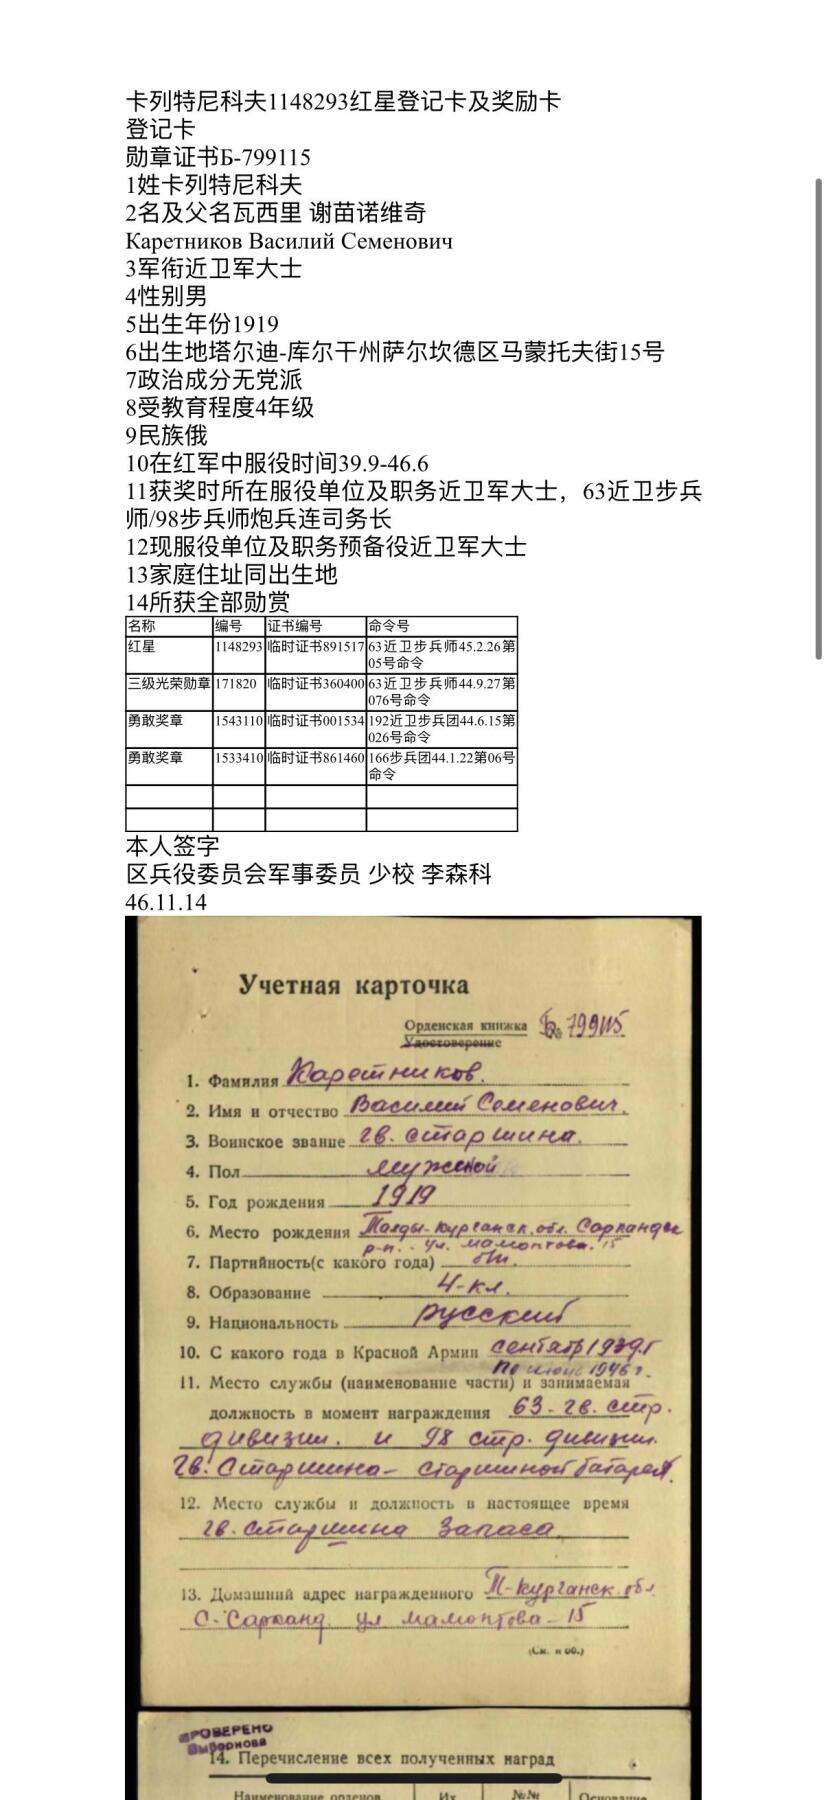 卡列特尼科夫1148293红星登记卡及奖励卡
登记卡
勋章证书Б-799115
1姓卡列特尼科夫
2名及父名瓦西里 谢苗诺维奇
Каретников Василий Семенович
3军衔近卫军大士
4性别男
5出生年份1919
6出生地塔尔迪-库尔干州萨尔坎德区马蒙托夫街15号
7政治成分无党派
8受教育程度4年级
9民族俄
10在红军中服役时间39.9-46.6
11获奖时所在服役单位及职务近卫军大士，63近卫步兵
师/98步兵师炮兵连司务长
12现服役单位及职务预备役近卫军大士
13家庭住址同出生地
14所获全部勋赏
名称 编号 证书编号 命令号
红星 1148293 临时证书891517 63近卫步兵师45.2.26第
05号命令
三级光荣勋章 171820 临时证书360400 63近卫步兵师44.9.27第
076号命令
勇敢奖章 1543110 临时证书001534 192近卫步兵团44.6.15第
026号命令
勇敢奖章 1533410 临时证书861460 166步兵团44.1.22第06号
命令
本人签字
区兵役委员会军事委员 少校 李森科
46.11.14
Учетная карточка
Орденская книжка Б № 799115
Удостоверение
1. Фамилия Каретников.
2. Имя и отчество Василий Семенович.
3. Воинское звание гв. старшина.
4. Пол мужской
5. Год рождения 1919
6. Место рождения Талды-Курганск. обл. Саркандск
р-н. ул. мамонтова. 15
7. Партийность(с какого года) б/п.
8. Образование 4-кл.
9. Национальность русский
10. С какого года в Красной Армии сентябр 1939 г
по июнь 1946 г.
11. Место службы (наименование части) и занимаемая
должность в момент награждения 63-гв. стр.
дивизии. и 98 стр. дивизии.
Гв. Старшина- старшиной батареи.
12. Место службы и должность в настоящее время
гв. старшина запаса
13. Домашний адрес награжденного Т-Курганск. обл
С. Сарканд. ул мамонтова-15
(См. н об.)
ПРОВЕРЕНО
Выборнова
14. Перечисление всех полученных наград
Наименование орденов Их №№ Основание